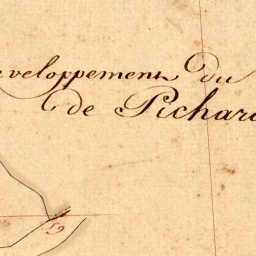 veloppement du
de Pichar
59